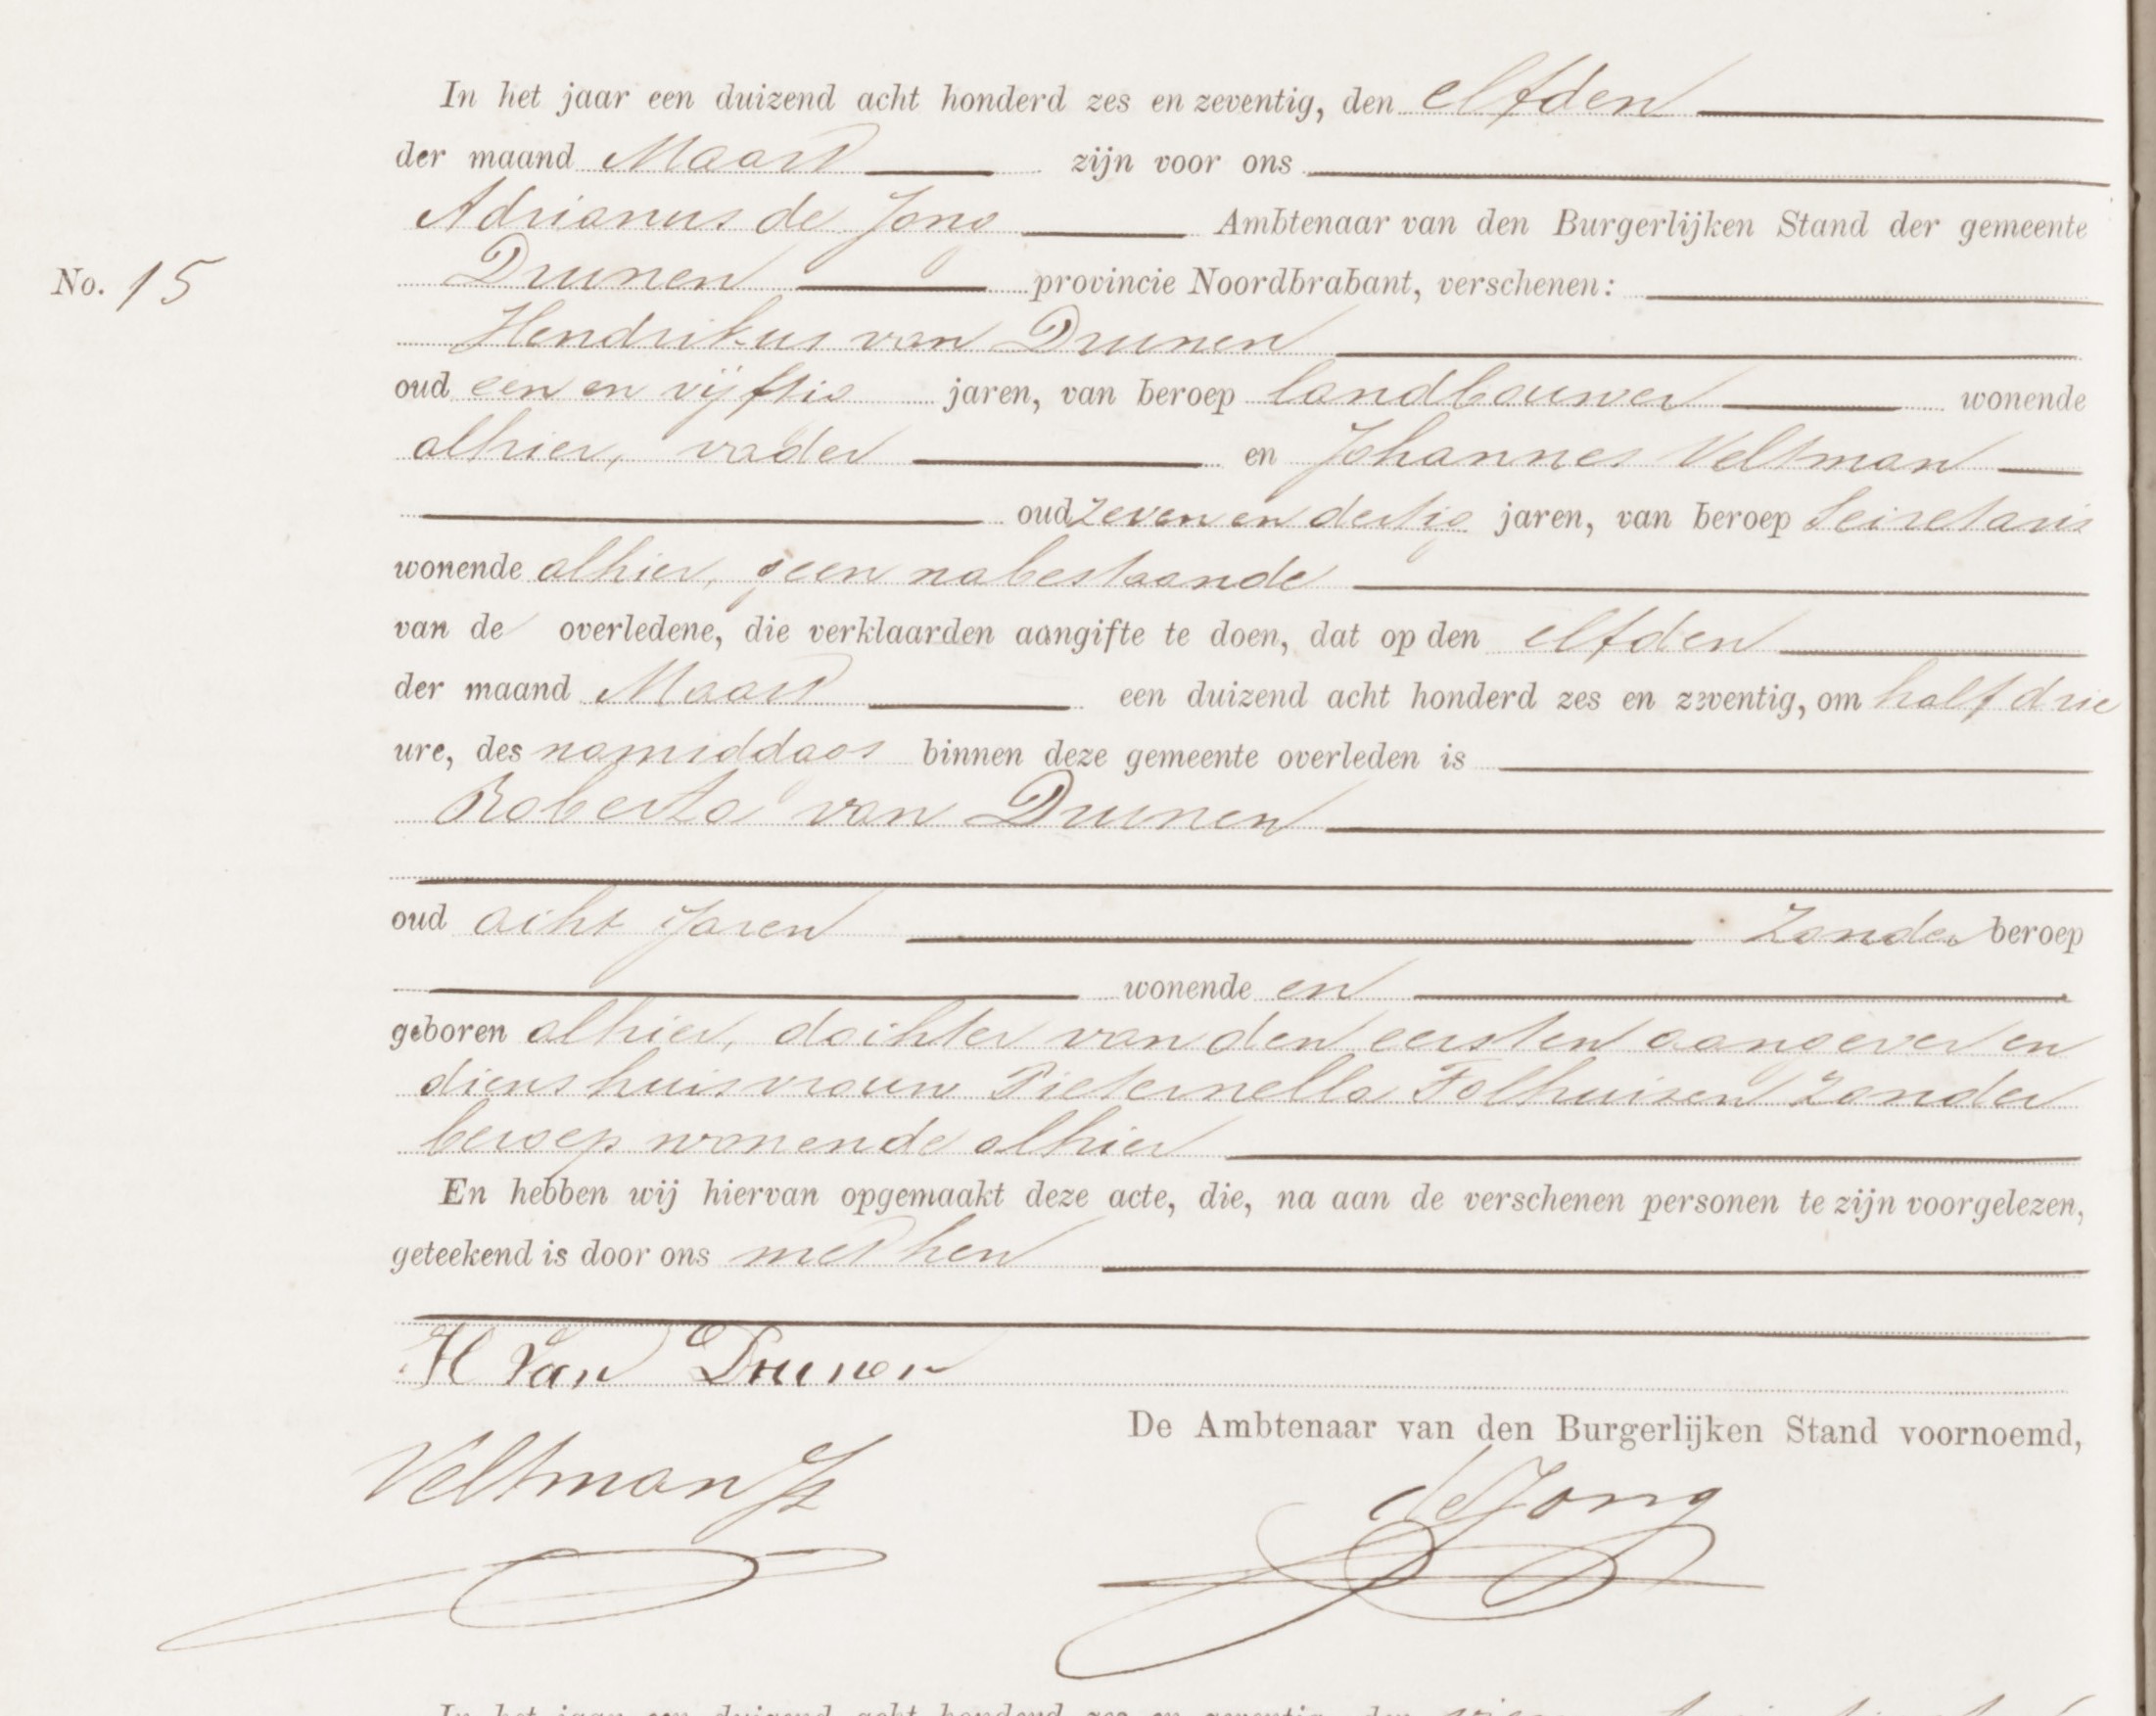 In het jaar een duizend acht honderd zes en zeventig, den elfden
der maand Maart zijn voor ons
Adrianus de Jong Ambtenaar van den Burgerlijken Stand der gemeente
No. 15
Drunen provincie Noordbrabant, verschenen:
Hendrikus van Drunen
oud een en vijftig jaren, van beroep landbouwer wonende
alhier, vader en Johannes Veltman
oud zeven en dertig jaren, van beroep Secretaris
wonende alhier, geen nabestaande
van de overledene, die verklaarden aangifte te doen, dat op den elfden
der maand Maart een duizend acht honderd zes en zeventig, om half drie
ure, des namiddags binnen deze gemeente overleden is
Roberta van Drunen
oud acht jaren Zonder beroep
wonende en
geboren alhier, dochter van den eersten aangever en
diens huisvrouw Pieternella Folhuisen zonder
beroep wonende alhier
En hebben wij hiervan opgemaakt deze acte, die, na aan de verschenen personen te zijn voorgelezen,
geteekend is door ons met hen
H Van Drunen
De Ambtenaar van den Burgerlijken Stand voornoemd,
Veltman Jz
de Jong
In het jaar een duizend acht honderd zes en zeventig, den